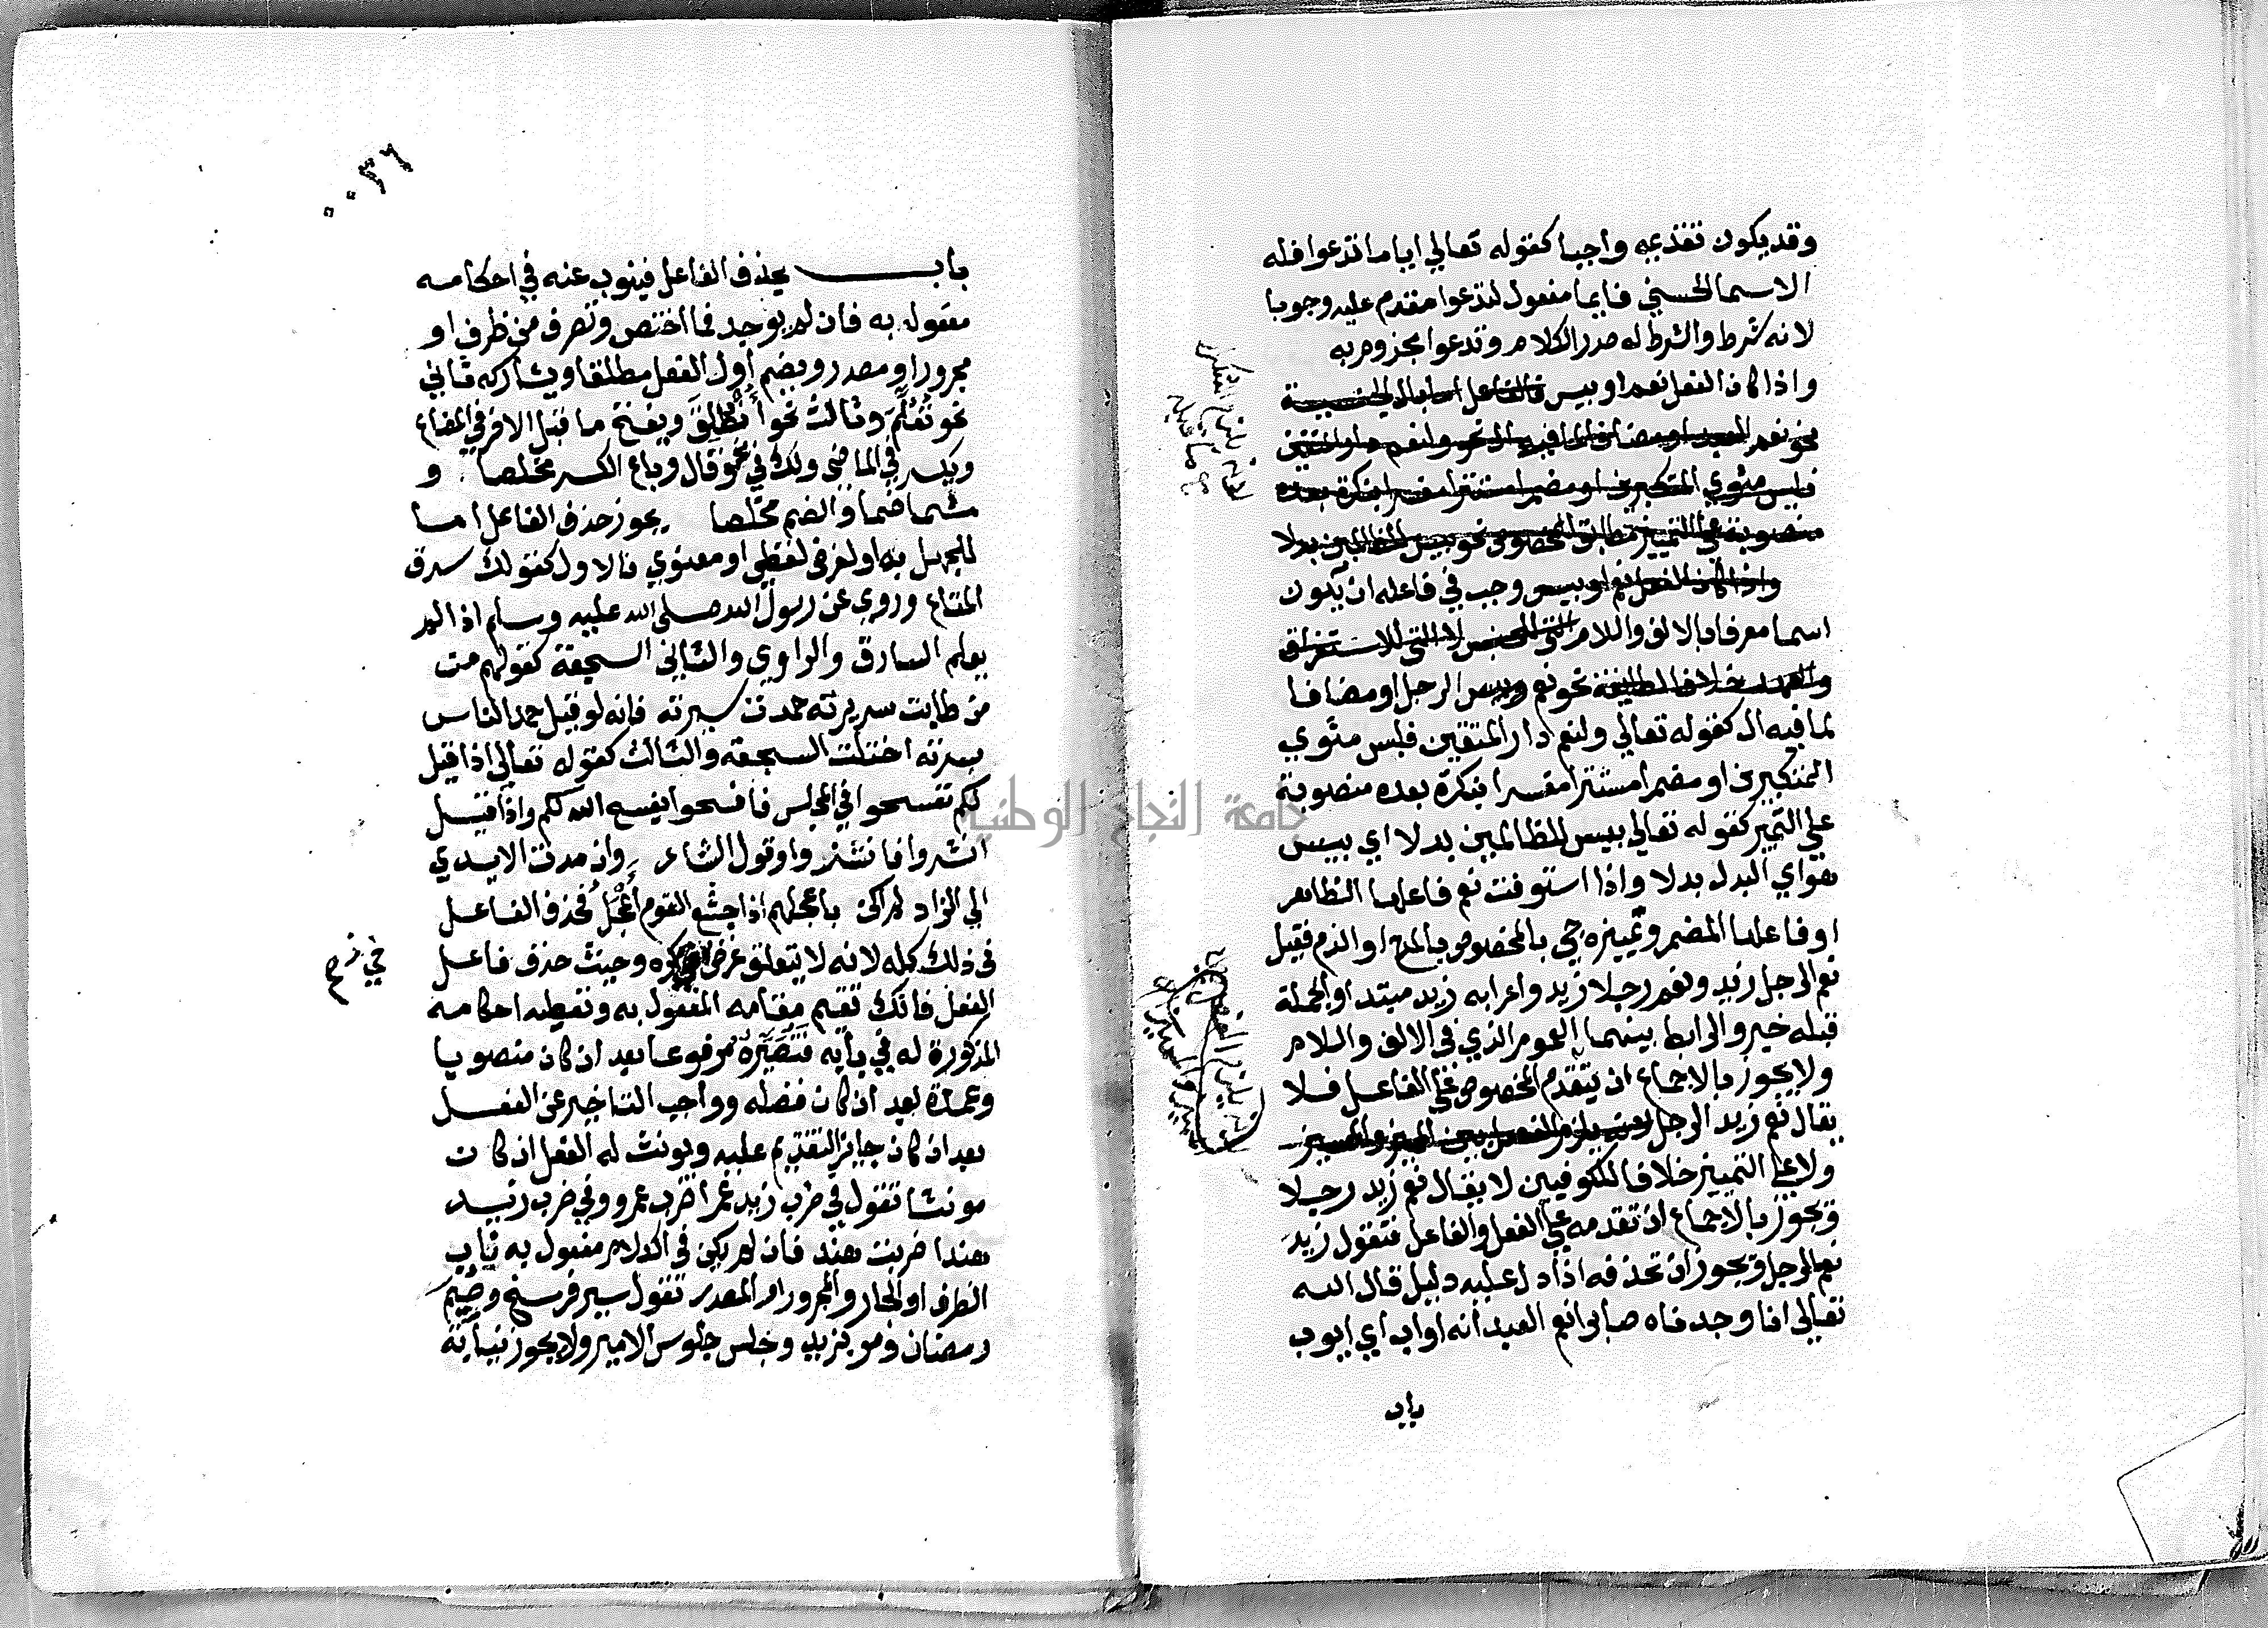 وقد يكون تقديمه واجبا كقوله تعالي اياما تدعوا فله
الاسما الحسني فايما مفعول لتدعوا مقدم عليه وجوبا
لانه شرط والشرط له صدر الكلام وتدعوا مجزوم به
واذا كان الفعل نعم او بيس فالفاعل اما بال الجنسية
نحو نعم العبد او مضاف لما فيه ال نحو ولنعم دار المتقين
فلبس مثوي المتكبرين او مضمرا مستترا مفسرا بنكرة بعده
منصوبة علي التمييز مطابق المخصوص نحو بيس للظالمين بدلا
واذا كان الفعل نعم او بيس وجب في فاعله ان يكون
اسما معرفا بالالف واللام التي للجنس لا التي للاستغراق
والعهد خلافا نحو نعم وبيس الرجل او مضافا
لما فيه ال كقوله تعالي ولنعم دار المتقين فلبس مثوي
المتكبرين او مضمرا مستترا مفسرا بنكرة بعده منصوبة
علي التمييز كقوله تعالي بيس للظالمين بدلا اي بييس
هو اي البدل بدلا واذا استوفت نعم فاعلها الظاهر
او فاعلها المضمر وتمييزه جي بالمخصوص بالمدح او الذم فقيل
نعم الرجل زيد ونعم رجلا زيد واعرابه زيد مبتدا والجملة
قبله خبر والرابط بينهما العموم الذي في الالف واللام
ولا يجوز بالاجماع ان يتقدم المخصوص علي الفاعل فلا
يقال نعم زيد الرجل لانه يلزم الفصل بين المميز والتمييز
ولا علي التمييز خلافا للكوفيين لا يقال نعم زيد رجلا
ويجوز بالاجماع ان تقدمه علي الفعل والفاعل فتقول زيد
نعم الرجل ويجوز ان تحذفه اذا دل عليه دليل قال الله
تعالي انا وجدناه صابرا نعم العبد انه اواب اي ايوب
باب
٠٠٣٦
باب يحذف الفاعل فينوب عنه في احكامه
مفعول به فان لم يوجد فما اختص وتصرف من ظرف او
مجرور او مصدر ويضم اول الفعل مطلقا ويشاركه ثاني
نحو تُعُلِّمَ وثالث نحو اُنْطُلِقَ ويفتح ما قبل الاخر في المضارع
ويكسر في الماضي ولك في نحو قال وباع الكسر مخلصا و
مشما ضما والضم مخلصا يجوز حذف الفاعل اما
للجهل به او لغرض لفظي او معنوي فالاول كقولك سرق
المتاع وروي عن رسول الله صلي الله عليه وسلم اذا لم
يعلم السارق والراوي والثاني السجعة كقولهم من
من طابت سريرته حمدت سيرته فانه لو قيل حمد الناس
سيرته اختلت السجعة والثالث كقوله تعالي اذا قيل
لكم تفسحوا في المجلس فافسحوا يفسح الله لكم واذا قيل
انشزوا فانشزوا وقول الشاعر وان مدت الايدي
الي الزاد لم اكن باعجلهم اذا جشع القوم اعجل فحذف الفاعل
في ذلك كله لانه لا يتعلق غرض بذكره وحيث حذف فاعل
الفعل فانك تقيم مقامه المفعول به وتعطيه احكامه
المذكورة له في بابه فتصيره مرفوعا بعد ان كان منصوبا
وعمدة بعد ان كان فضله وواجب التاخير عن الفعل
بعد ان كان جايز التقديم عليه ويونث له الفعل ان كان
مونثا تقول في ضرب زيد عمرا ضرب عمرو وفي ضرب زيد
هندا ضربت هند فان لم يكن في الكلام مفعول به ناب
الظرف او الجار والمجرور او المصدر تقول سير فرسخ وصيم
رمضان ومر بزيد وجلس جلوس الامير ولا يجوز نيابة
جامعة النجاح الوطنية